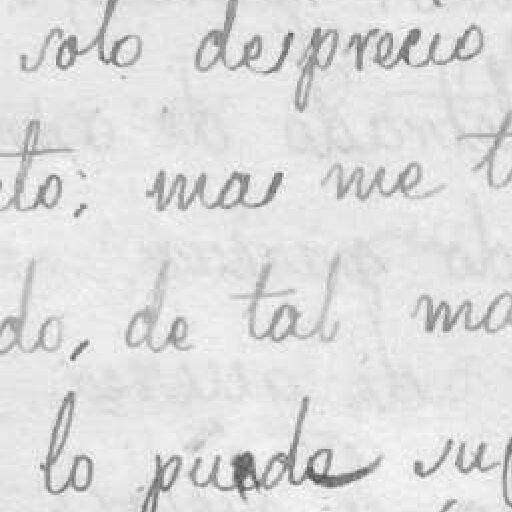 solo desprecio
to; mas me t
do, de tal ma
lo pueda su